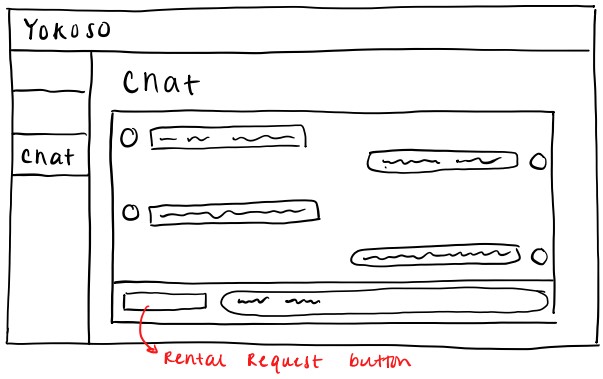 Yokoso
Chat
Chat
Rental Request button